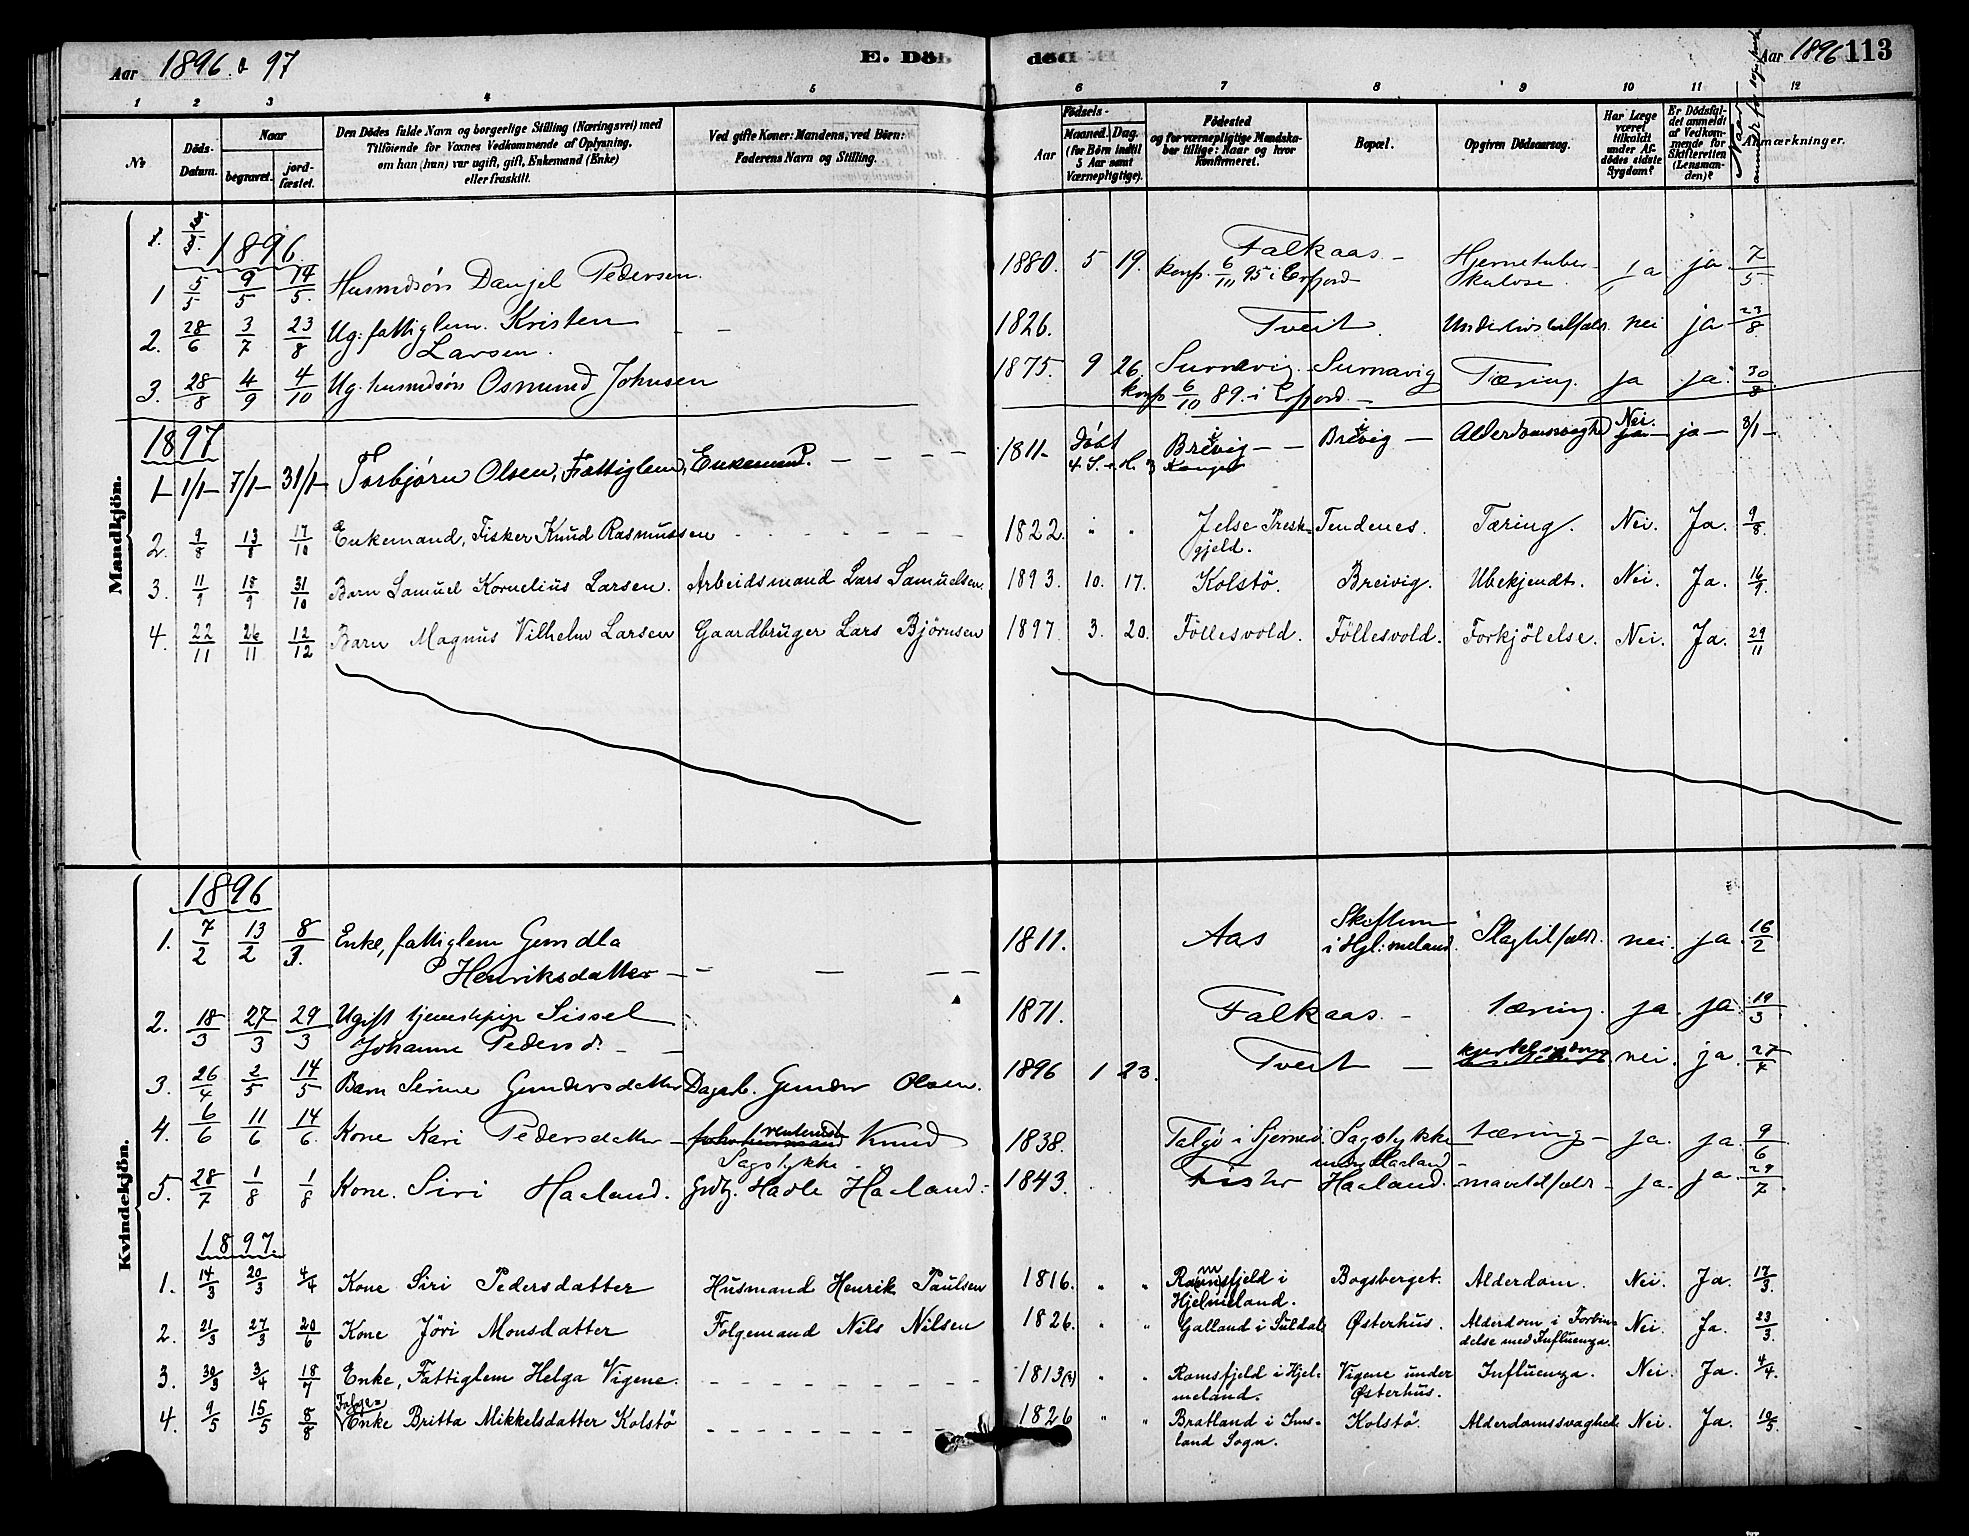 Aar 1896 & 97
E. Dö
død
Aar 1896 113
1 2 3 4 5 6 7 8 9 10 11 12
No
Döds-Datum.
Naar
begravet.
jord-fæstet.
Den Dödes fulde Navn og borgerlige Stilling (Næringsvei) med
Tilföiende for Voxnes Vedkommende af Oplysning,
om han (hun) var ugift, gift, Enkemand (Enke)
eller fraskilt.
Ved gifte Koner: Mandens, ved Börn:
Faderens Navn og Stilling.
Födsels-
Aar
Maaned. Dag.
(for Börn indtil
5 Aar samt
Værnepligtige).
Födested
og for værnepligtige Mandska-
ber tillige: Naar og hvor
konfirmeret.
Bopæl.
Opgiven Dödsaarsag.
Har Læge
været
tilkaldt
under Af-
dödes sidste
Sygdom?
Er Dödsfal-
det anmeldt
af Vedkom-
mende for
Skifteretten
(Lensman-
den)?
Anmærkninger.
Mandkjön.
1896.
1 5/5 9/5 14/5. Husmdsön Danjel Pedersen. 1880. 5 19. Falkaas - konf. 6/10 95 i Erfjord Hjernetuber-kulose. ja ja 7/5
2. 28/6 3/7 23/8 Ug. fattiglem. Kristen Larsen. - - 1826. Tveit. Underlivstilfælde. nei ja 23/8
3. 28/8 4/9 4/10 Ug. husmdsön Osmund Johnsen 1875. 9 26. Survevig konf 6/10 89. i Erfjord. Surnavig Tæring. ja ja 30/8
1897
1 1/1 7/1 31/1 Torbjörn Olsen, Fattiglem, Enkemand. - - - - 1811 Döbt Breivig - Breivig - Alderdomssvaghed Nei. ja 3/1
2. 9/8 13/8 17/10 Enkemand, Fisker Knud Rasmussen 1822. " " Jelse Prest-gjeld. Tendenes. Tæring. Nei. Ja. 9/8.
3. 11/9 15/9 31/10 Barn Samuel Kornelius Larsen. Arbeidsmand Lars Samuelsen. 1893. 10. 17. Kolstö. Breivig. Ubekjendt. Nei. Ja. 16/9.
4. 22/11 26/11 12/12 Barn Magnus Vilhelm Larsen Gaardbruger Lars Björnsen 1897 3. 20. Föllesvold. Föllesvold. Forkjölelse. Nei. Ja. 29/11
Kvindekjön.
1896
1. 7/2 13/2 8/3. Enke, fattiglem Gundla Henriksdatter - - - - 1811. Aas Skiftun i Hjelmeland. Slagtilfælde. nei. ja. 16/2
2. 18/3 27/3 29/3 Ugift tjenestepige Sissel Johanne Pedersd. - - 1871. Falkaas. - tæring. ja ja 19/3
3. 26/4 2/5 14/5 Barn Serine Gundersdatter Dagarb. Gunder Olsen. 1896 1 23. Tveit - kjertelsygdom nei. ja. 27/4
4. 6/6 11/6 14/6. Kone Kari Pedersdatter - Knud Sagstykke 1838. Talgö i Sjernerö Sagstykke under Haaland tæring - ja. ja. 9/6
5. 28/7 1/8 1/8 Kone. Siri Haaland. Grdbr. Hadle Haaland. 1843. Haaland. mavetilfælde - ja. ja. 29/7
1897.
1. 14/3 20/3 4/4 Kone Siri Pedersdatter Husmand Henrik Paulsen 1816. " " Ramsfjeld i Hjelmeland. Bogsberget. Alderdom. Nei. Ja. 17/3.
2. 21/3 27/3 20/6 Kone Jöri Monsdatter Folgemand Nils Nilsen 1826. " " Galland i Suldal Østerhus. Alderdom i Forbin-delse med Influenza. Nei. Ja. 23/3.
3. 30/3 3/4 18/7 Enke, Fattiglem Helga Vigene. - - - - 1813(?) " " Ramsfjeld i Hjel-meland. Vigene under Østerhus. Influenza. Nei. Ja. 4/4.
4. 9/5 15/5 8/8 Folge= Enke Britta Mikkelsdatter Kolstö - - - - 1826 " " Bratland i Ims-land Sogn. Kolstö. Alderdomssvaghed Nei. Ja. 10/5.